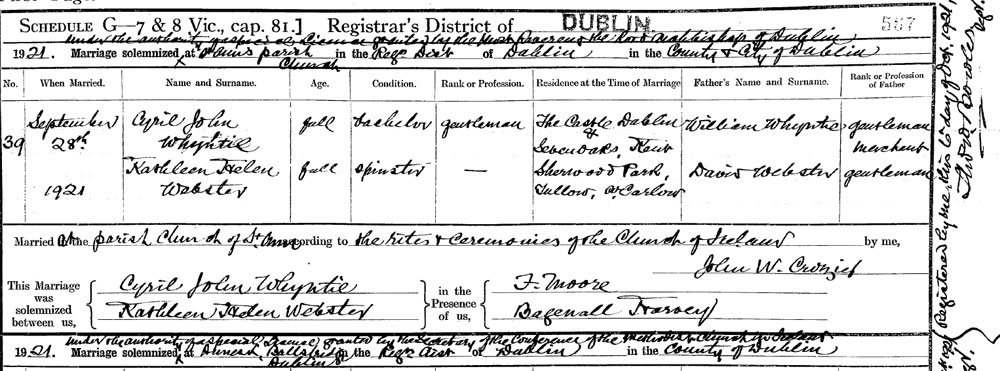 SCHEDULE G—7 & 8 Vic., cap. 81.] Registrar's District of DUBLIN 567
under the authority of special license granted by the Most Reverend the Lord Archbishop of Dublin
1921. Marriage solemnized at St Ann's parish Church in the Regr's Dist of Dublin in the County & City of Dublin
No. When Married. Name and Surname. Age. Condition. Rank or Profession. Residence at the Time of Marriage Father's Name and Surname. Rank or Profession of Father
39 September 28th 1921
Cyril John Whyntie full bachelor gentleman The Castle Dublin & Sevenoaks, Kent William Whyntie gentleman merchant
Kathleen Helen Webster full spinster — Sherwood Park, Tullow, Co Carlow David Webster gentleman
Married at the parish Church of St Ann according to the rites & Ceremonies of the Church of Ireland by me,
John W. Crozier
This Marriage was solemnized between us,
Cyril John Whyntie
Kathleen Helen Webster
in the Presence of us,
F. Moore
Bagenall Harvey
under the authority of a special license granted by the Secretary of the Conference of the Methodist Church in Ireland
1921. Marriage solemnized at Ballsbridge Dublin in the Regr's Dist of Dublin in the County of Dublin
Registered by me, this 10 day of Oct 1921,